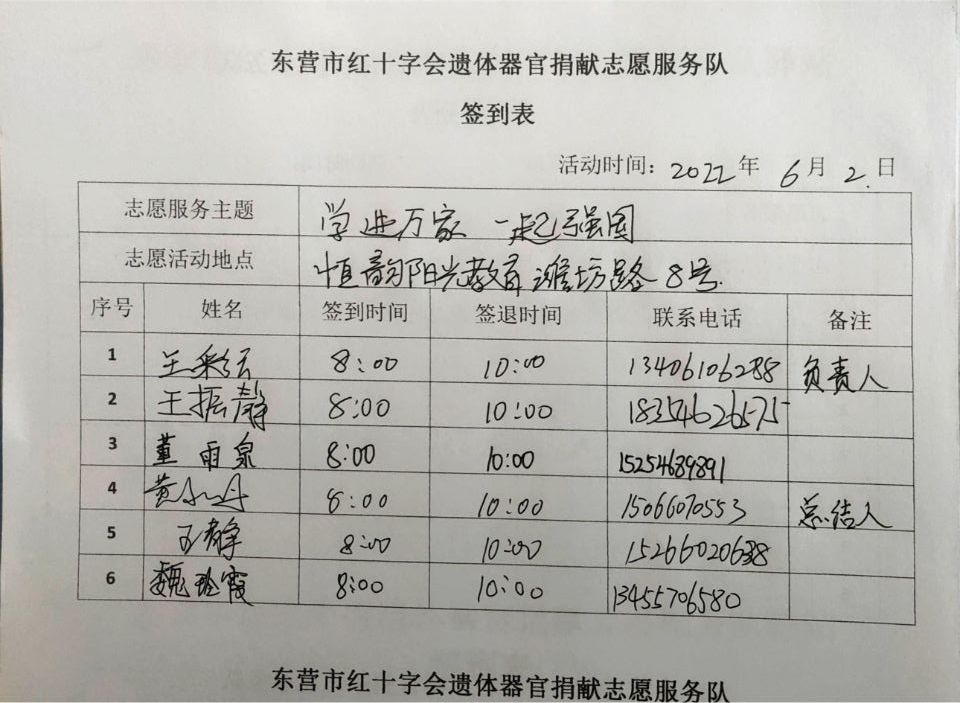 东营市红十字会遗体器官捐献志愿服务队
签到表
活动时间：2022年 6月 2.日
志愿服务主题 学进万家 一起强国
志愿活动地点 恒韵阳光教育潍坊路8号.
序号 姓名 签到时间 签退时间 联系电话 备注
1 王彩云 8:00 10:00 13406106288 负责人
2 王振静 8:00 10:00 18354626575
3 董雨泉 8:00 10:00 15254689891
4 黄小丹 8:00 10:00 15066070553 总结人
5 王静 8:00 10:00 15266020638
6 魏玲霞 8:00 10:00 13455706580
东营市红十字会遗体器官捐献志愿服务队